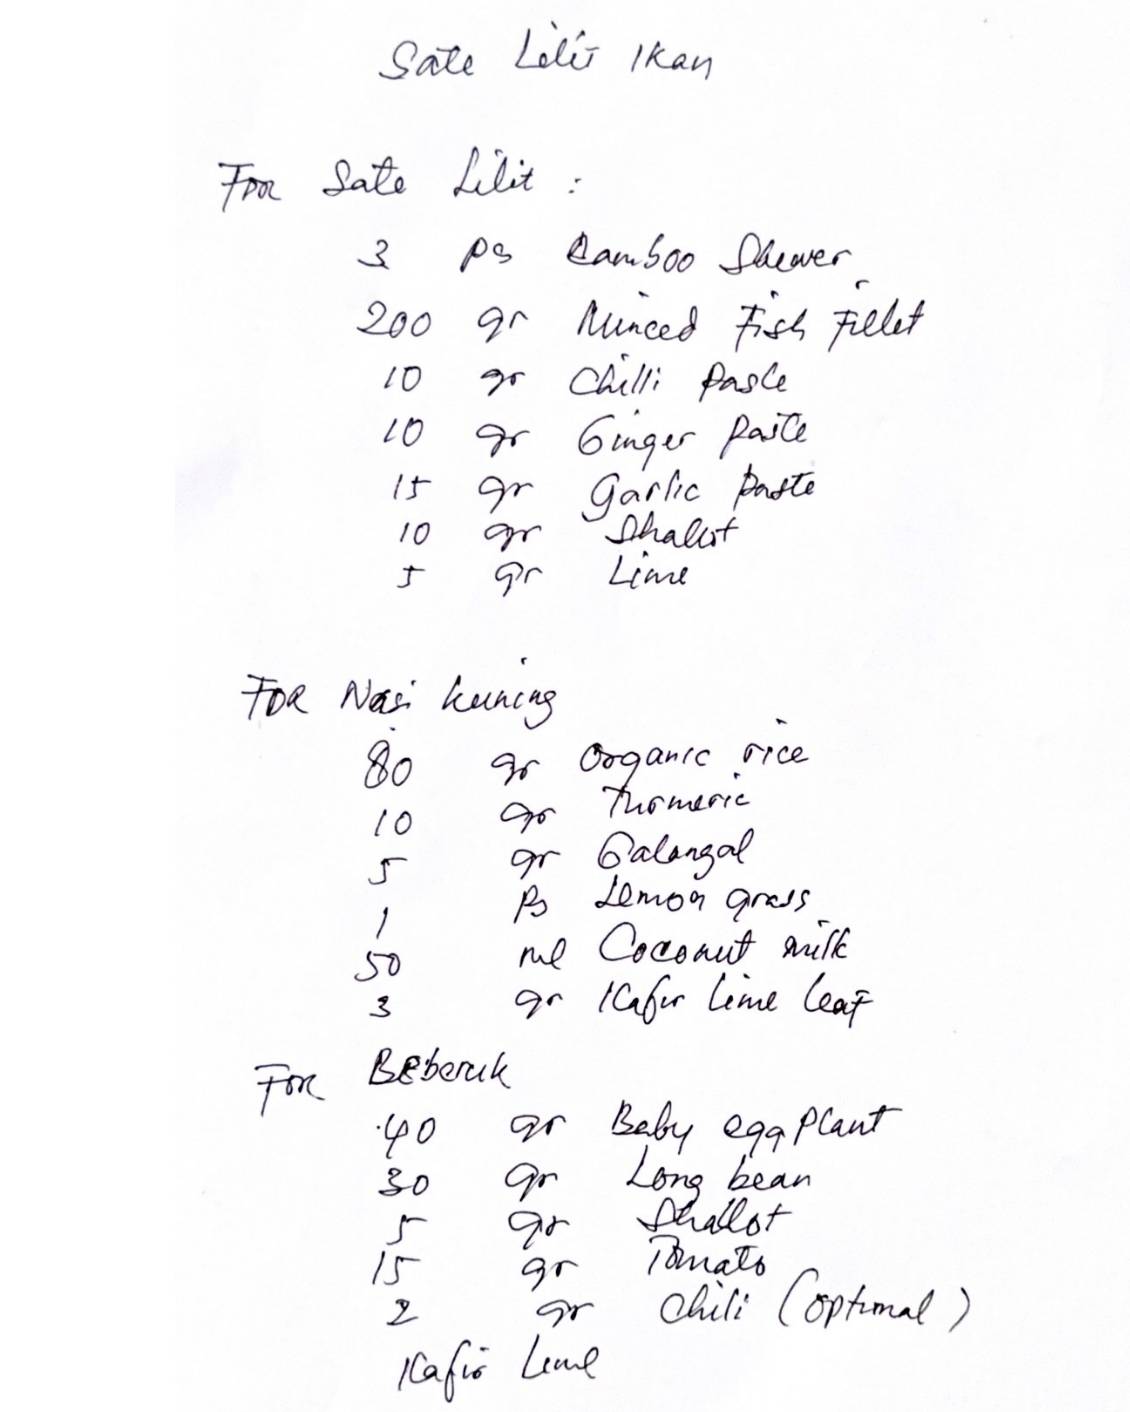 Sate Lilit Ikan
For Sate Lilit :
3 ps Bamboo Skewer
200 gr Minced Fish Fillet
10 gr Chilli Paste
10 gr Ginger Paste
15 gr Garlic paste
10 gr Shallot
5 gr Lime
For Nasi kuning
80 gr Organic rice
10 gr Turmeric
5 gr Galangal
1 Ps Lemon grass
50 ml Coconut milk
3 gr Kafir lime leaf
For Beberuk
40 gr Baby eggplant
30 gr Long bean
5 gr Shallot
15 gr Tomato
2 gr Chili (optional)
Kafir Lime